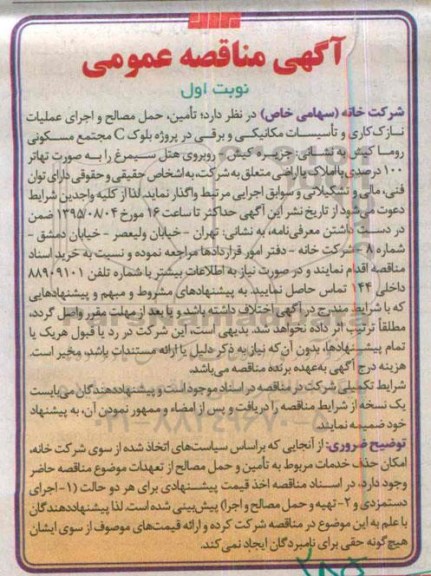 آگهی مناقصه عمومی
نوبت اول
شرکت خانه (سهامی خاص) در نظر دارد؛ تأمین، حمل مصالح و اجرای عملیات
نازک‌کاری و تأسیسات مکانیکی و برقی در پروژه بلوک C مجتمع مسکونی
روما کیش به نشانی: جزیره کیش، روبروی هتل سیمرغ را به صورت تهاتر
۱۰۰ درصدی با املاک یا اراضی متعلق به شرکت، به اشخاص حقیقی و حقوقی دارای توان
فنی، مالی و تشکیلاتی و سوابق اجرایی مرتبط واگذار نماید. لذا از کلیه واجدین شرایط
دعوت می‌شود از تاریخ نشر این آگهی حداکثر تا ساعت ۱۶ مورخ ۱۳۹۵/۰۸/۰۴ ضمن
در دست داشتن معرفی‌نامه، به نشانی: تهران - خیابان ولیعصر - خیابان دمشق -
شماره ۸ - شرکت خانه - دفتر امور قراردادها مراجعه نموده و نسبت به خرید اسناد
مناقصه اقدام نمایند و در صورت نیاز به اطلاعات بیشتر با شماره تلفن ۸۸۹۰۹۱۰۱
داخلی ۱۴۴ تماس حاصل نمایید. به پیشنهادهای مشروط و مبهم و پیشنهادهایی
که با شرایط مندرج در آگهی اختلاف داشته باشد و یا بعد از مهلت مقرر واصل گردد،
مطلقاً ترتیب اثر داده نخواهد شد. بدیهی است، این شرکت در رد یا قبول هریک یا
تمام پیشنهادها، بدون آن‌که نیاز به ذکر دلیل یا ارائه مستندات باشد، مخیر است.
هزینه درج آگهی به‌عهده برنده مناقصه می‌باشد.
شرایط تکمیلی شرکت در مناقصه در اسناد موجود است و پیشنهاددهندگان می‌بایست
یک نسخه از شرایط مناقصه را دریافت و پس از امضاء و ممهور نمودن آن، به پیشنهاد
خود ضمیمه نمایند.
توضیح ضروری: از آنجایی که براساس سیاست‌های اتخاذ شده از سوی شرکت خانه،
امکان حذف خدمات مربوط به تأمین و حمل مصالح از تعهدات موضوع مناقصه حاضر
وجود دارد، در اسناد مناقصه اخذ قیمت پیشنهادی برای هر دو حالت (۱- اجرای
دستمزدی و ۲- تهیه و حمل مصالح و اجرا) پیش‌بینی شده است. لذا پیشنهاددهندگان
با علم به این موضوع در مناقصه شرکت کرده و ارائه قیمت‌های موصوف از سوی ایشان
هیچ‌گونه حقی برای نامبردگان ایجاد نمی‌کند.